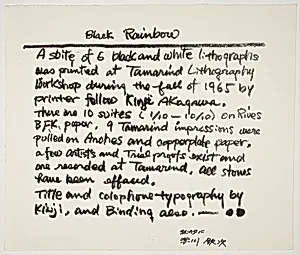 Black Rainbow
A suite of 6 black and white lithographs
was printed at Tamarind Lithography
Workshop during the fall of 1965 by
printer fellow Kinji Akagawa.
There are 10 suites (1/10 — 10/10) on Rives
B.F.K. paper, 9 Tamarind impressions were
pulled on Arches and copperplate paper,
a few artists and Trial proofs exist and
are recorded at Tamarind, all stones
have been effaced.
Title and colophone-typography by
Kinji, and Binding also.